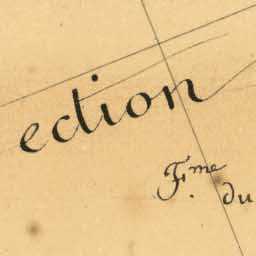 ection
F.me
du